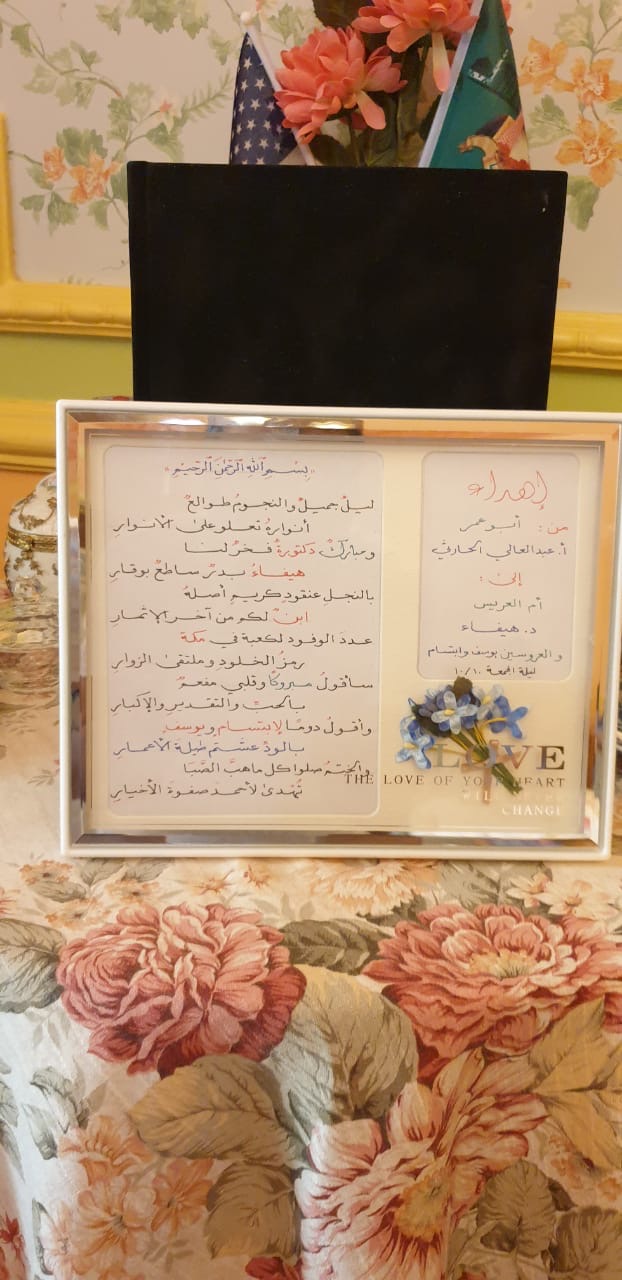 «بِسْمِ اللهِ الرَّحْمٰنِ الرَّحِيْمِ»
ليلٌ جميلٌ والنجومُ طوالعٌ
أنوارهُ تعلو على الأنوارِ
ومباركٌ دكتورةٌ فخرٌ لنا
هيفاءُ بدرٌ ساطعٌ بوقارِ
بالنجلِ عنقودٍ كريمٍ أصلهُ
ابنٌ لكم من آخر الإثمارِ
عددَ الوفودِ لكعبة في مكة
رمزُ الخلودِ وملتقى الزوارِ
سأقولُ مبروكًا وقلبي مفعمٌ
بالحبِّ والتقديرِ والإكبارِ
وأقولُ دومًا لابتسام ويوسفٍ
بالودِّ عشتم طيلة الأعمارِ
والختمُ صلوا كل ما هبَّ الصَّبا
تُهدىٰ لأحمدَ صفوةَ الأخيارِ
إهداء
من: أبو عمر
أ. عبدالعالي الحارثي
إلىٰ:
أم العريس
د. هيفاء
والعروسين يوسف وابتسام
ليلة الجمعة ١٠/١٠
LOVE
THE LOVE OF YOUR HEART
WILL
CHANGE